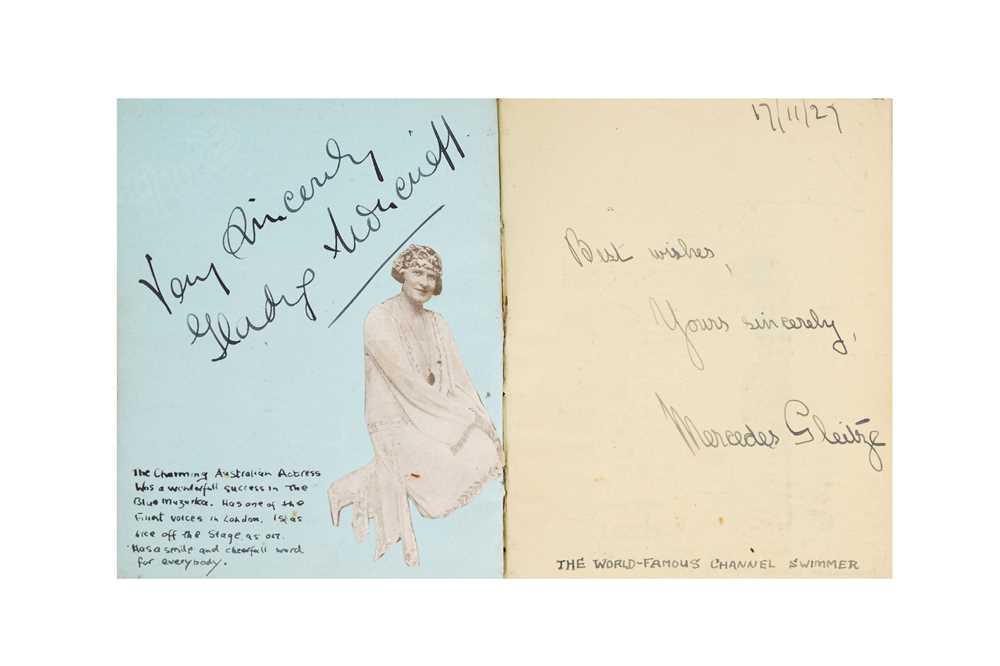 Very Sincerely
Gladys Moncrieff.
The Charming Australian Actress
Was a wonderfull success in The
Blue Mazurka. Has one of the
Finest voices in London. Is as
nice off the Stage as on.
Has a smile and cheerfull word
for everybody.
17/11/27
Best wishes,
Yours sincerely,
Mercedes Gleitze
THE WORLD-FAMOUS CHANNEL SWIMMER